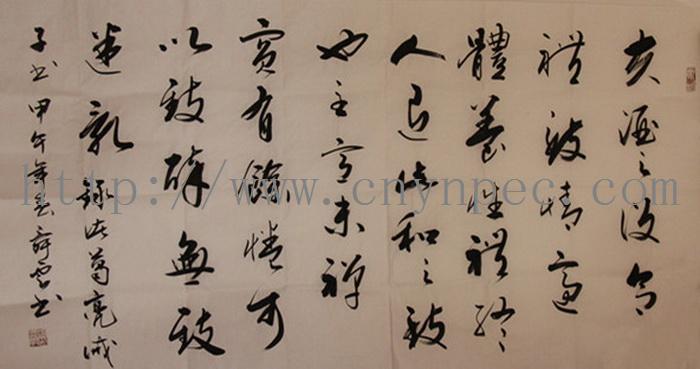 夫酒之设合
禮致情適
體養性禮終
人退此和之致
也主意未禅
賓有餘惓可
以致醉無致
迷亂 録诸葛亮诫
子书 甲午年 书
http://www.cnynpec.com